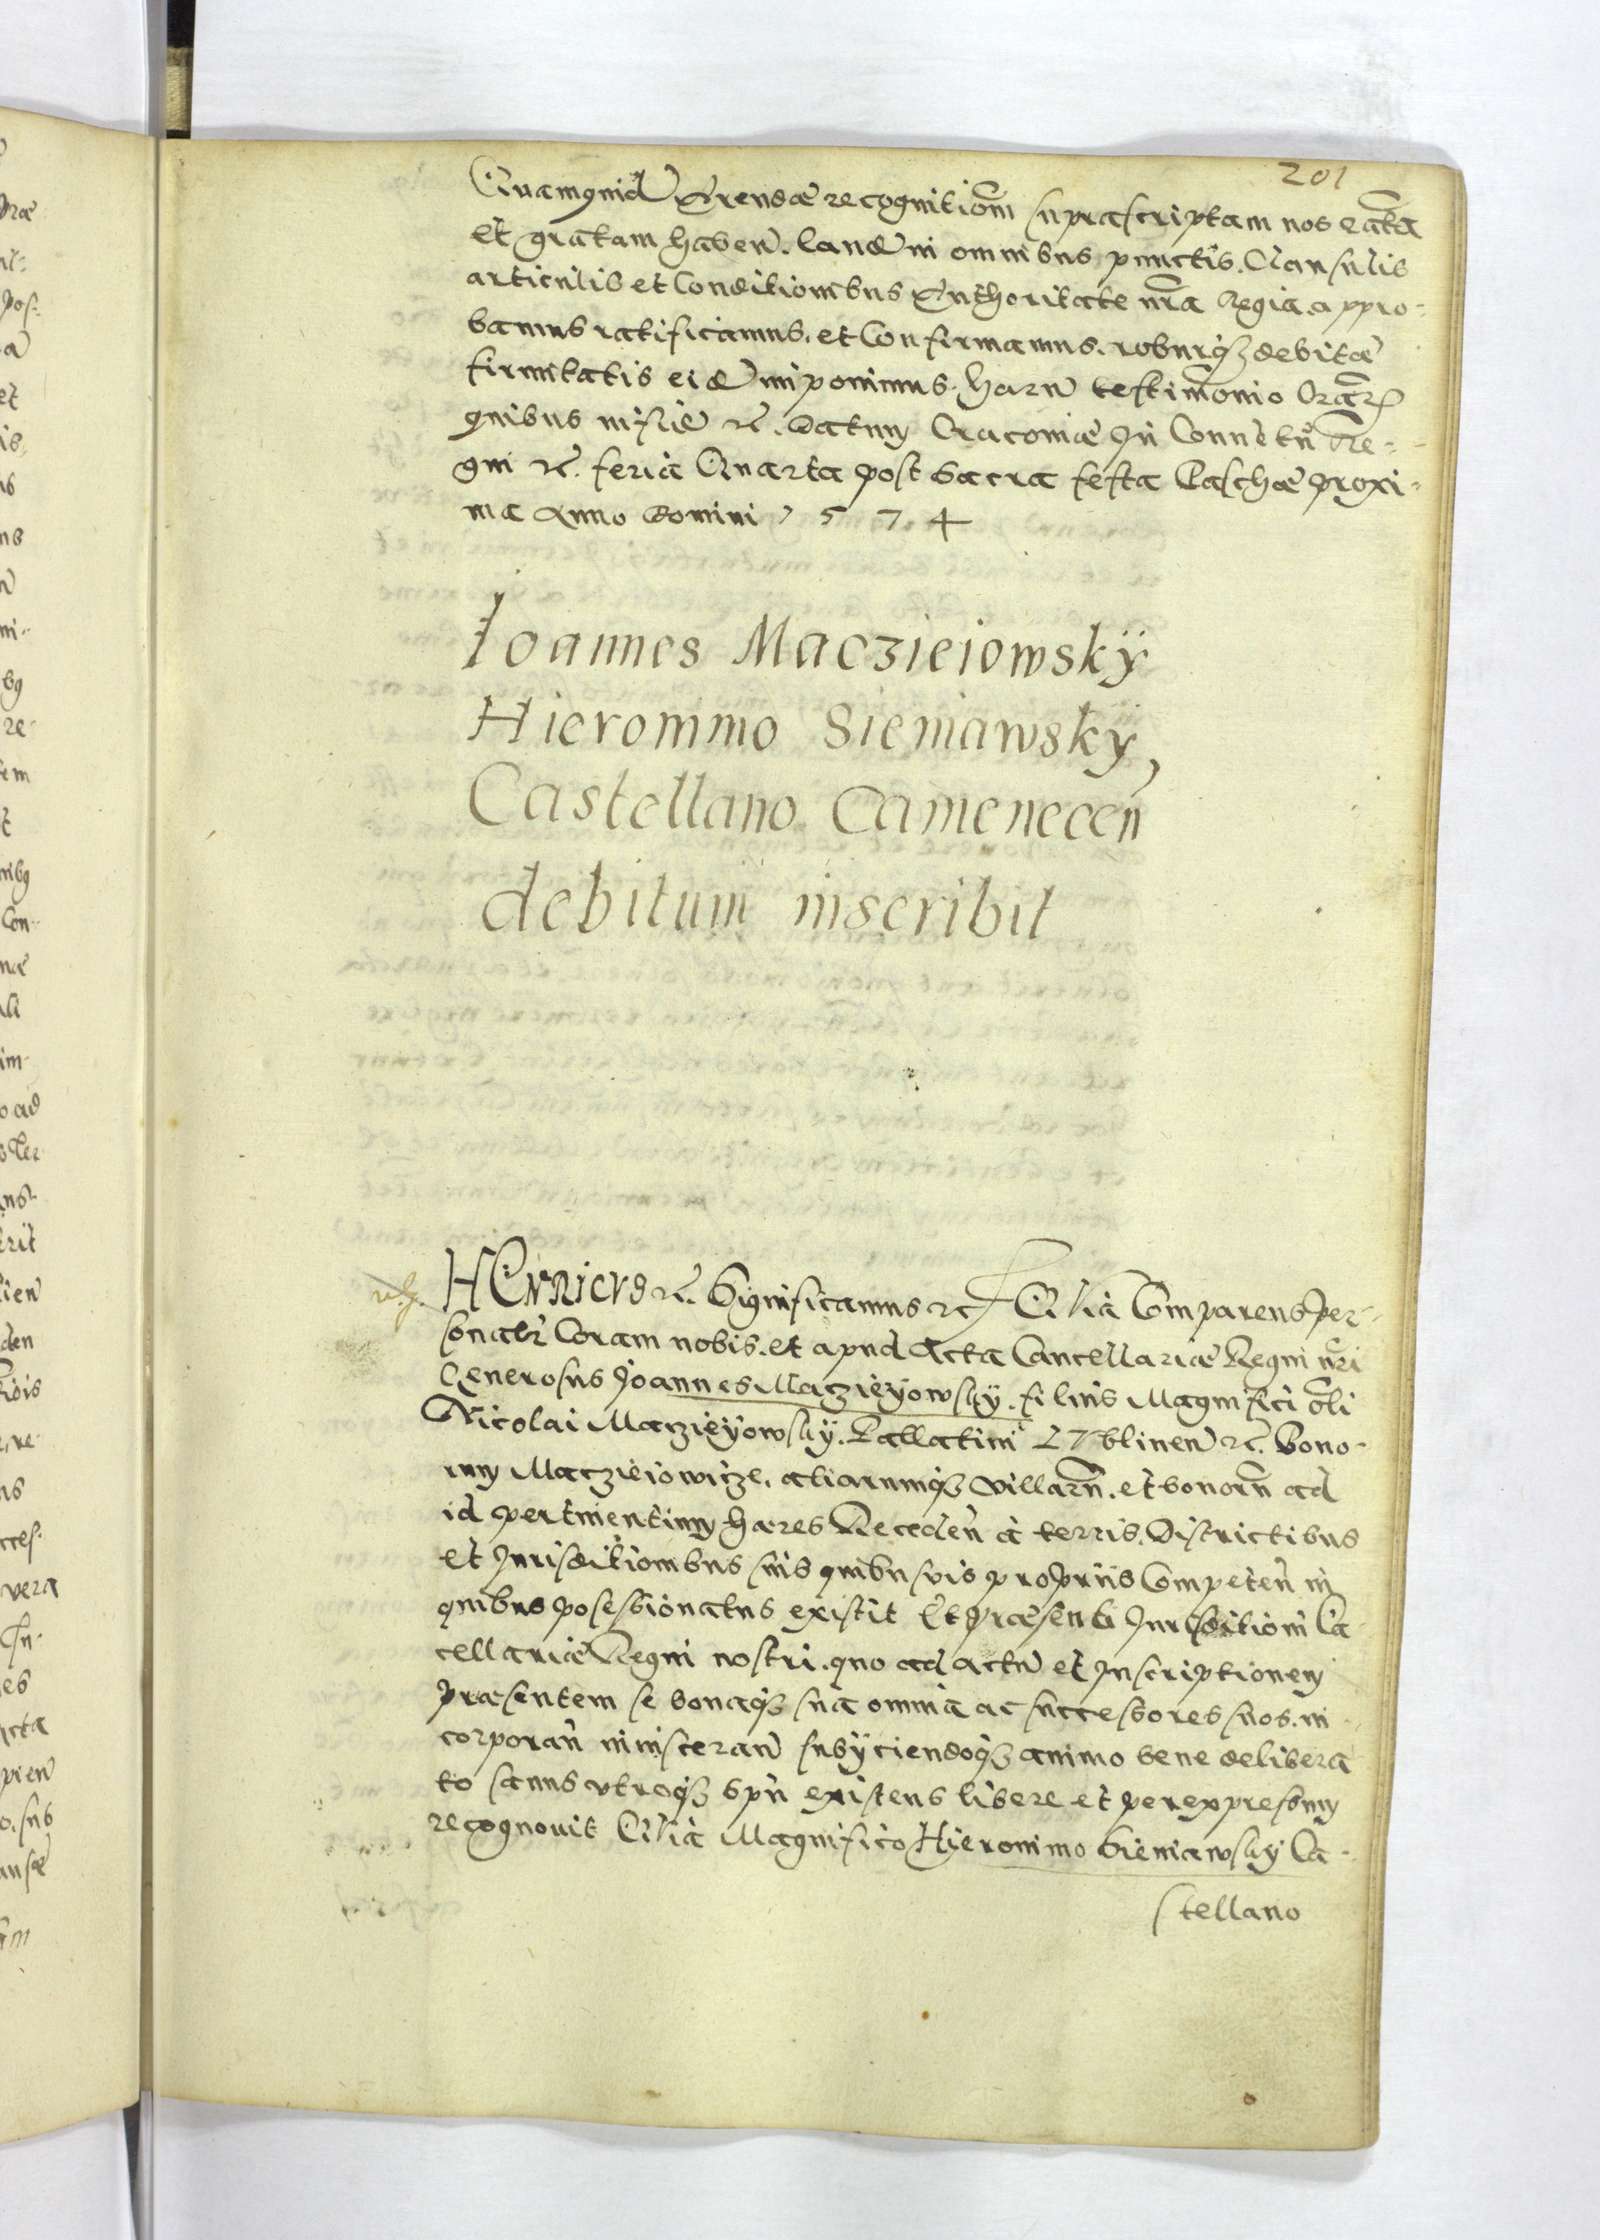 201
Quamquid Arendæ recognitiom̃ suprascriptam nos rata
et gratam haben. eand in omnibus punctis. Clausulis
articulis et Conditionibus Authoritate nr̃a Regia. appro-
bamus ratificamus. et Confirmamus. roburq3 debitæ
firmitatis eid imponimus. harn testimonio l̃rar
quibus nr̃is etc. Datum Cracoviæ In Conventu Re-
gni etc. feria Quarta post Sacra festa Paschæ proxi-
ma Anno Domini 1 5 7 4
Ioannes Maczieiowskÿ
Hieronimo Sieniawskÿ
Castellano Camenecen̄
debitum inscribit
HEnricvs etc. Significamus etc Quia Comparens per-
sonalr̃ Coram nobis. et apud Acta Cancellariæ Regni nr̃i
Generosus Joannes Maczieÿowskÿ. filius Magnifici oli
Nicolai Maczieÿowskÿ. Pallatini Lublinen etc. bono-
rum Maczieiowicze. aliarumq3 villarn. et bonorn ad
id pertinentium hæres Receden à terris. Districtibus
et Jurisditiombus suis quibusvis proprÿs Competen in
quibus posessionatus existit Et præsenti Jurisditioni Ca
cellariæ Regni nostri. quo ad actu et Inscriptionem
præsentem se bonaq3 sua omnia ac successores suos. in
corporan invisceran subÿciendoq3 animo bene delibera
to sanus vtroq3 spu existens libere et per expressum
recognovit Quia Magnifico Hieronimo Sieniawskÿ Ca-
stellano